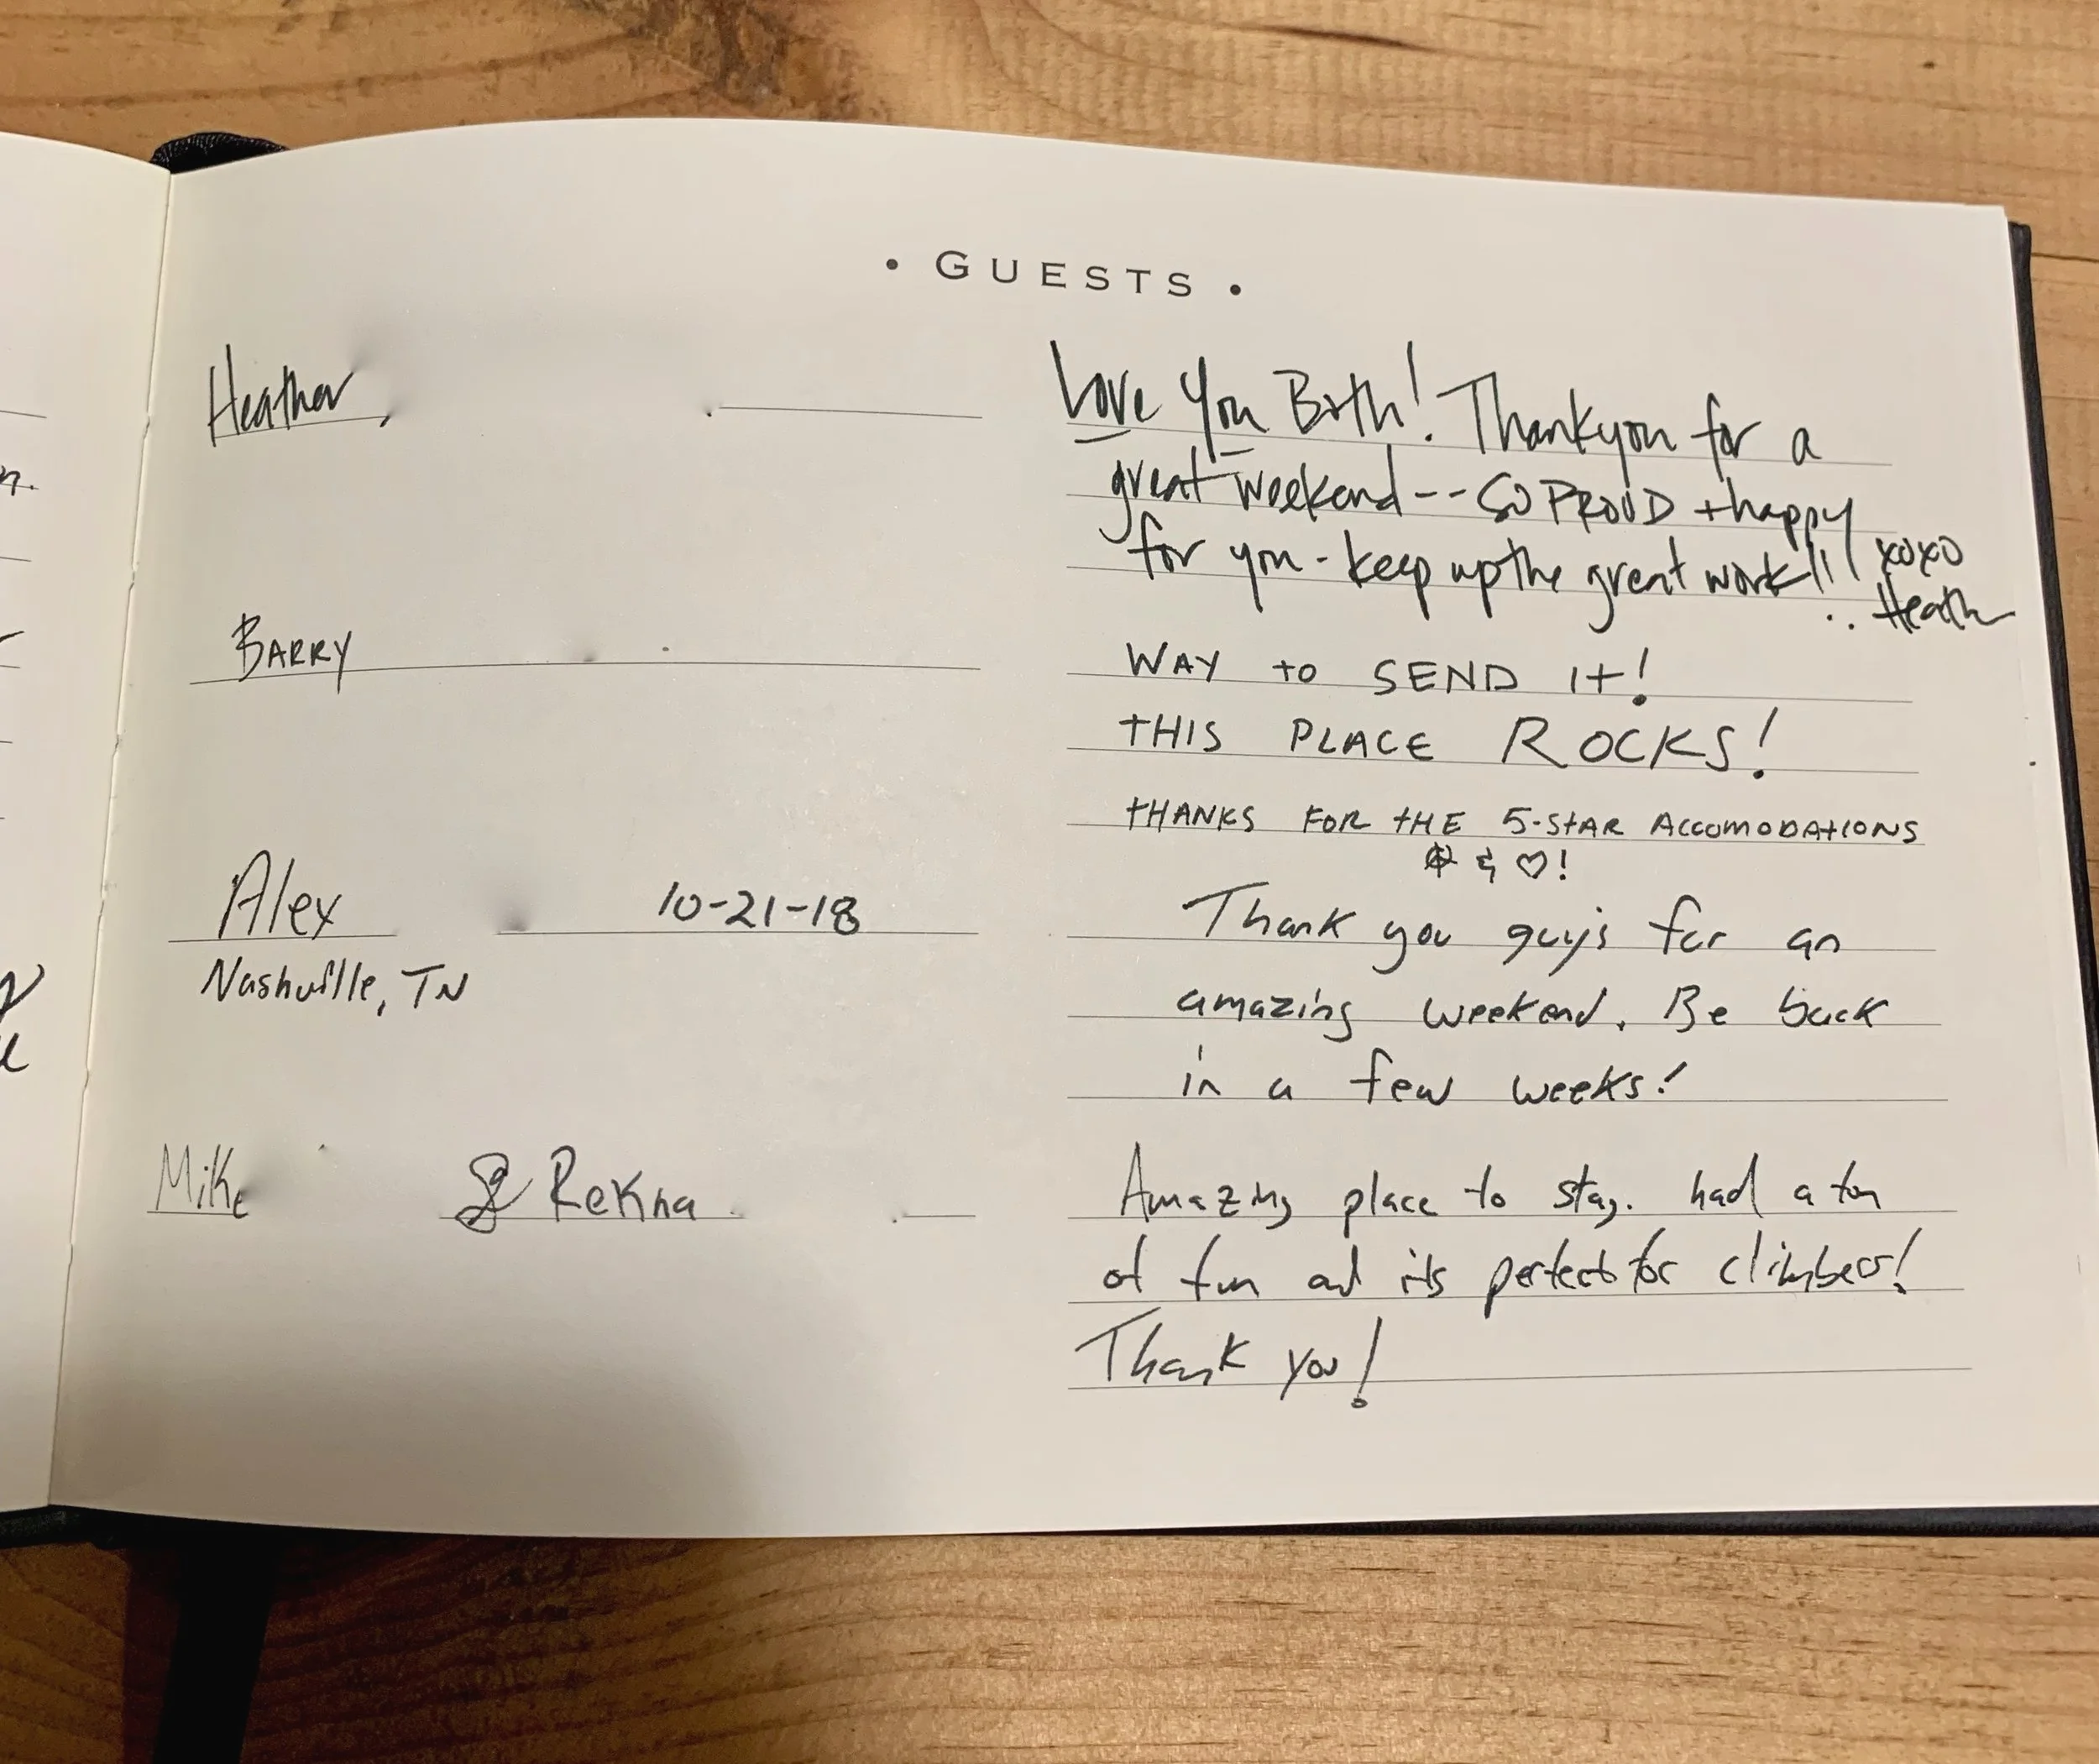 • GUESTS •
Heather,
Love You Both! Thankyou for a
great weekend -- SO PROUD + happy
for you - keep up the great work!!!
xoxo
Heath
BARRY
WAY to SEND It!
tHIS PLACE ROCKS!
tHANKS FOR tHE 5-StAR ACCOMODAtIONS
& ♡!
Alex 10-21-18
Nashville, TN
Thank you guys for an
amazing weekend. Be back
in a few weeks!
Mike & Rekha
Amazing place to stay. had a ton
of fun and its perfect for climbers!
Thank you!